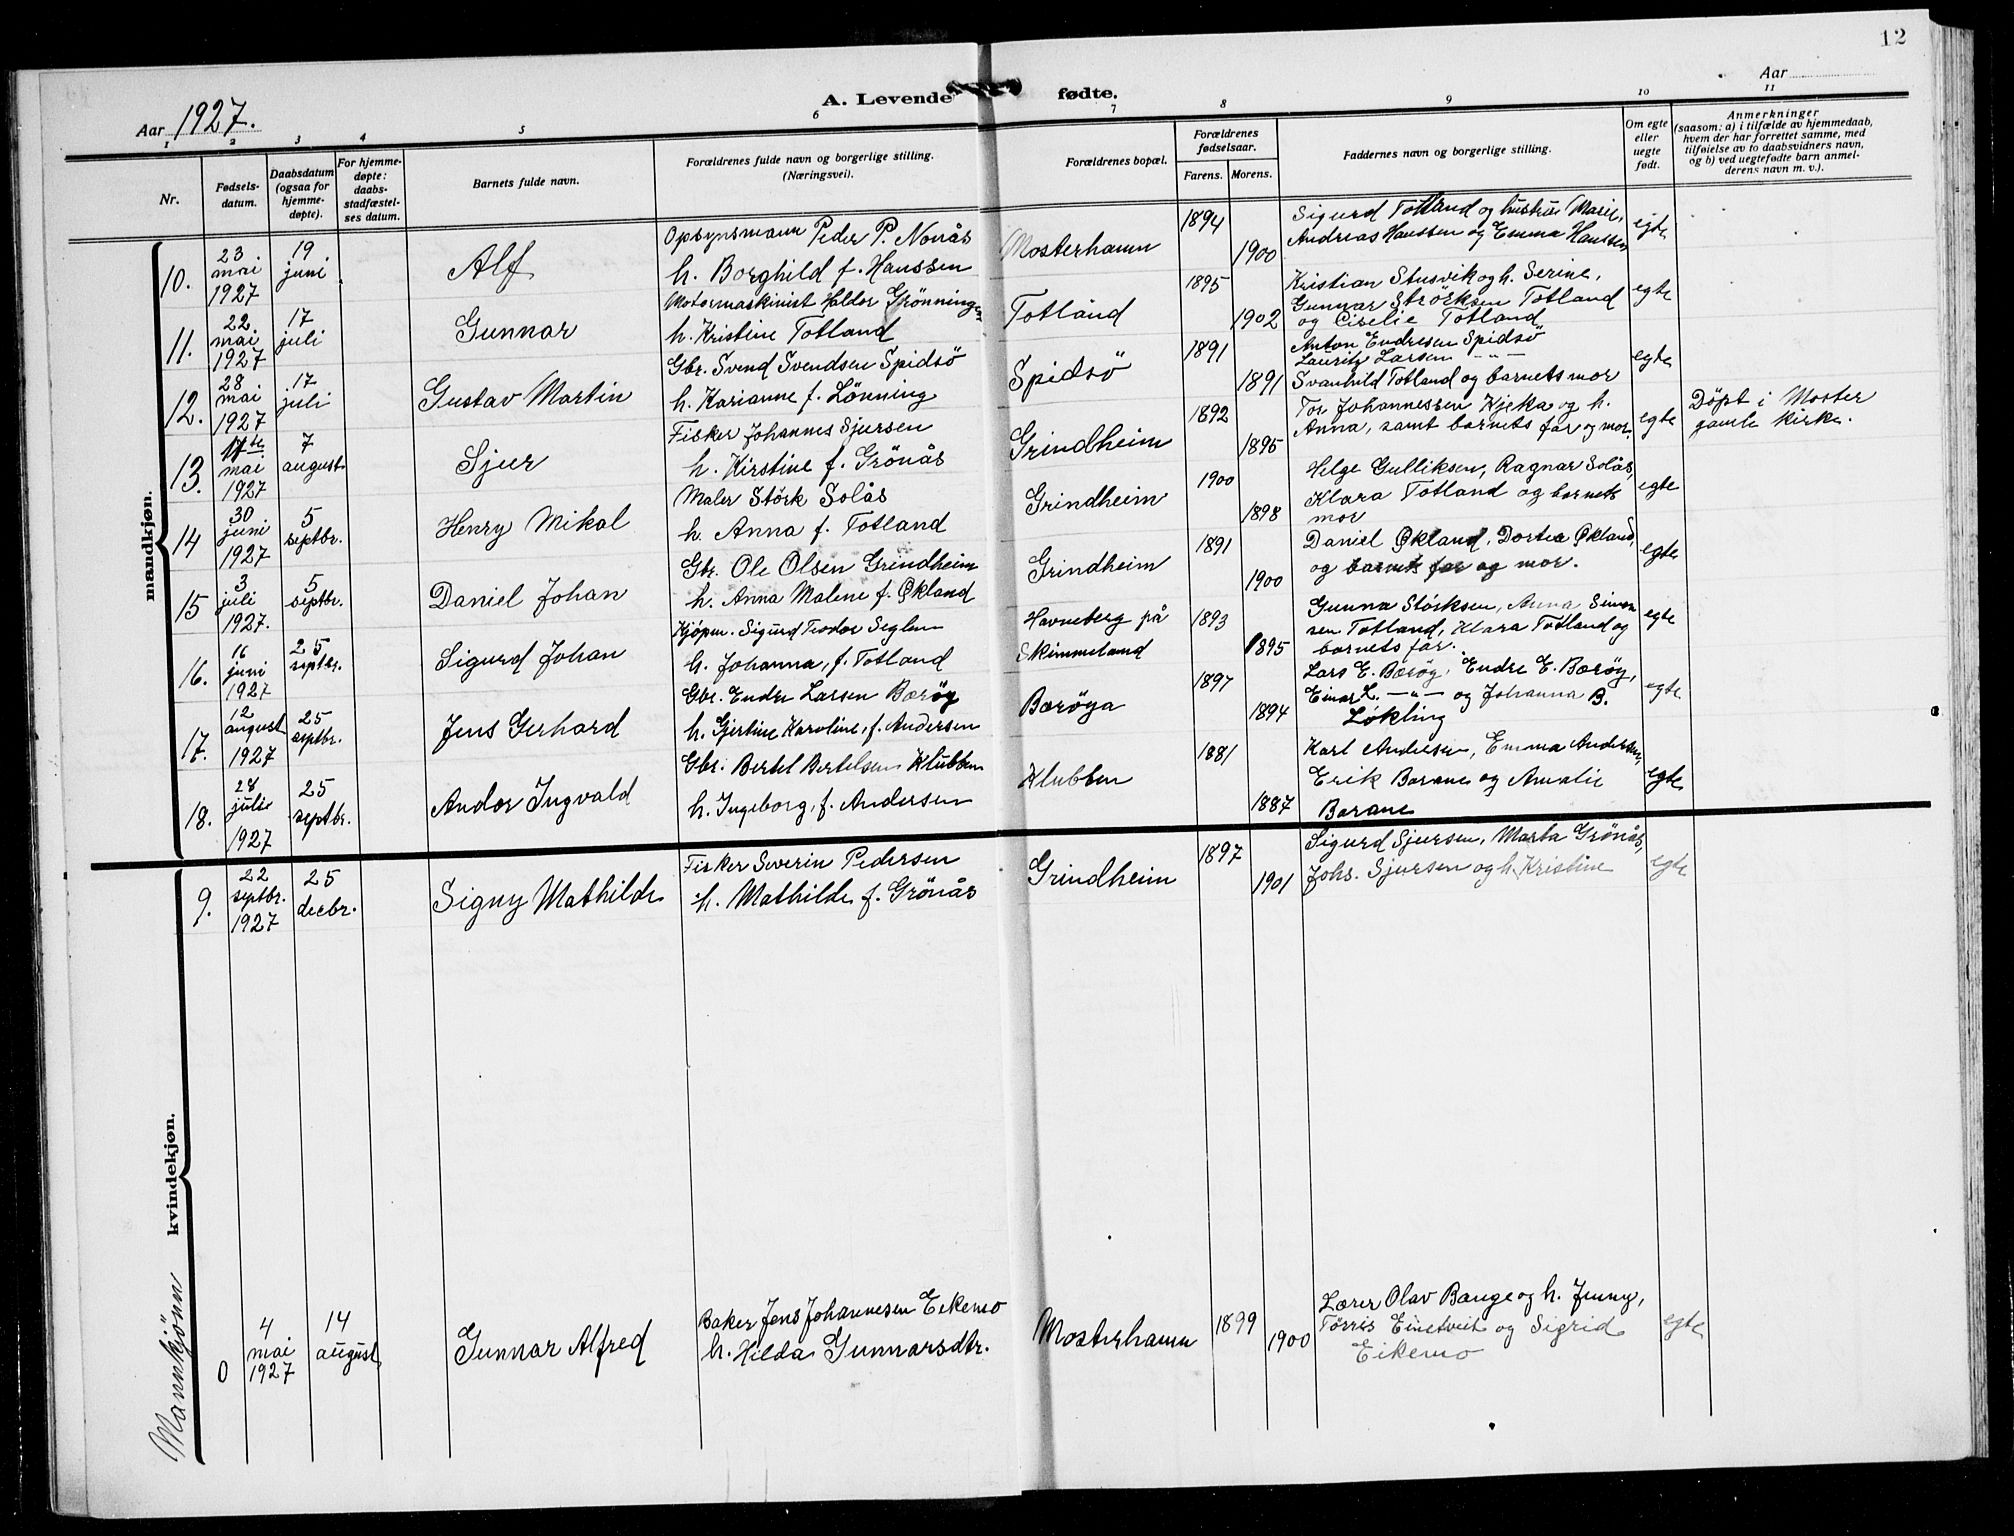 12
Aar 1927.
A. Levende fødte.
Aar
1 2 3 4 5 6 7 8 9 10 11
Nr.
Fødsels-
datum.
Daabsdatum
(ogsaa for
hjemme-
døpte).
For hjemme-
døpte:
daabs-
stadfæstel-
ses datum.
Barnets fulde navn.
Forældrenes fulde navn og borgerlige stilling.
(Næringsvei).
Forældrenes bopæl.
Forældrenes
fødselsaar.
Farens. Morens.
Faddernes navn og borgerlige stilling.
Om egte
eller
uegte
født.
Anmerkninger
(saasom: a) i tilfælde av hjemmedaab,
hvem der har forrettet samme, med
tilføielse av to daabsvidners navn,
og b) ved uegtefødte barn anmel-
derens navn m. v.).
mandkjøn.
10.
23.
mai
1927
19.
juni
Alf
Opsynsmann Peder P. Nonås
h. Borghild f. Hanssen
Mosterhamn
1894
1900
Sigurd Totland og hustru Marie,
Andreas Hanssen og Emma Hanssen
egte
11.
22.
mai
1927
17
juli
Gunnar
Motormaskinist Haldor Grönningen
h. Kristine Totland
Totland
1895
1902
Kristian Stusvik og h. Serine,
Gunnar Strörksen Totland
og Ciselie Totland
egte
12.
28
mai
1927
17
juli
Gustav Martin
Gbr. Svend Svendsen Spidsö
h. Karianne f. Lönning
Spidsö
1891
1891
Anton Endresen Spidsö
Lauritz Larsen -"-
Svanhild Totland og barnets mor
egte
13.
11te
mai
1927
7
august
Sjur
Fisker Johannes Sjursen
h. Kirstine f. Grönås
Grindheim
1892
1895
Tor Johannessen Kjeka og h.
Anna, samt barnets far og mor.
egte
Döpt i Moster
gamle kirke.
14
30
juni
1927
5
septbr.
Henry Mikal
Maler Störk Solås
h. Anna f. Totland
Grindheim
1900
1898
Helge Gulliksen, Ragnar Solås,
Klara Totland og barnets
mor
egte
15
3
juli
1927.
5
septbr.
Daniel Johan
Gbr. Ole Olsen Grindheim
h. Anna Malene f. Økland
Grindheim
1891
1900
Daniel Økland, Dortea Økland,
og barnets far og mor.
egte
16.
16
juni
1927
25
septbr.
Sigurd Johan
Kjøpm. Sigurd Teodor Seglem
h. Johanna, f. Totland
Havneberg på
Skimmeland
1893
1895
Gunna Størksen, Anna Simon
sen Totland, Klara Totland og
barnets far.
egte
17.
12
august
1927
25
septbr.
Jens Gerhard
Gbr. Endre Larsen Børøy
h. Gjertine Karoline, f. Andersen
Børøya
1897
1894
Lars E. Børøy, Endre E. Børøy,
Einar L. -"- og Johanna B.
Løkling
egte
18.
28
julie
1927
25
septbr.
Andor Ingvald
Gbr. Bertel Bertelsen Klubben
h. Ingeborg, f. Andersen
Klubben
1881
1887
Karl Andersen, Emma Andersen,
Erik Borane og Amalie
Borane
egte
kvindekjøn.
9.
22
septbr.
1927
25
decbr.
Signy Mathilde
Fisker Severin Pedersen
h. Mathilde f. Grönås
Grindheim
1897
1901
Sigurd Sjursen, Marta Grönås,
Johs. Sjursen og h. Kristine
egte
Mannkjönn
0
4
mai
1927
14
august
Gunnar Alfred
Baker Jens Johannesen Eikemo
h. Hilda Gunnarsdtr.
Mosterhamn
1899
1900
Lærer Olav Bauge og h. Jenny,
Törris Einetveit og Sigrid
Eikemo
egte